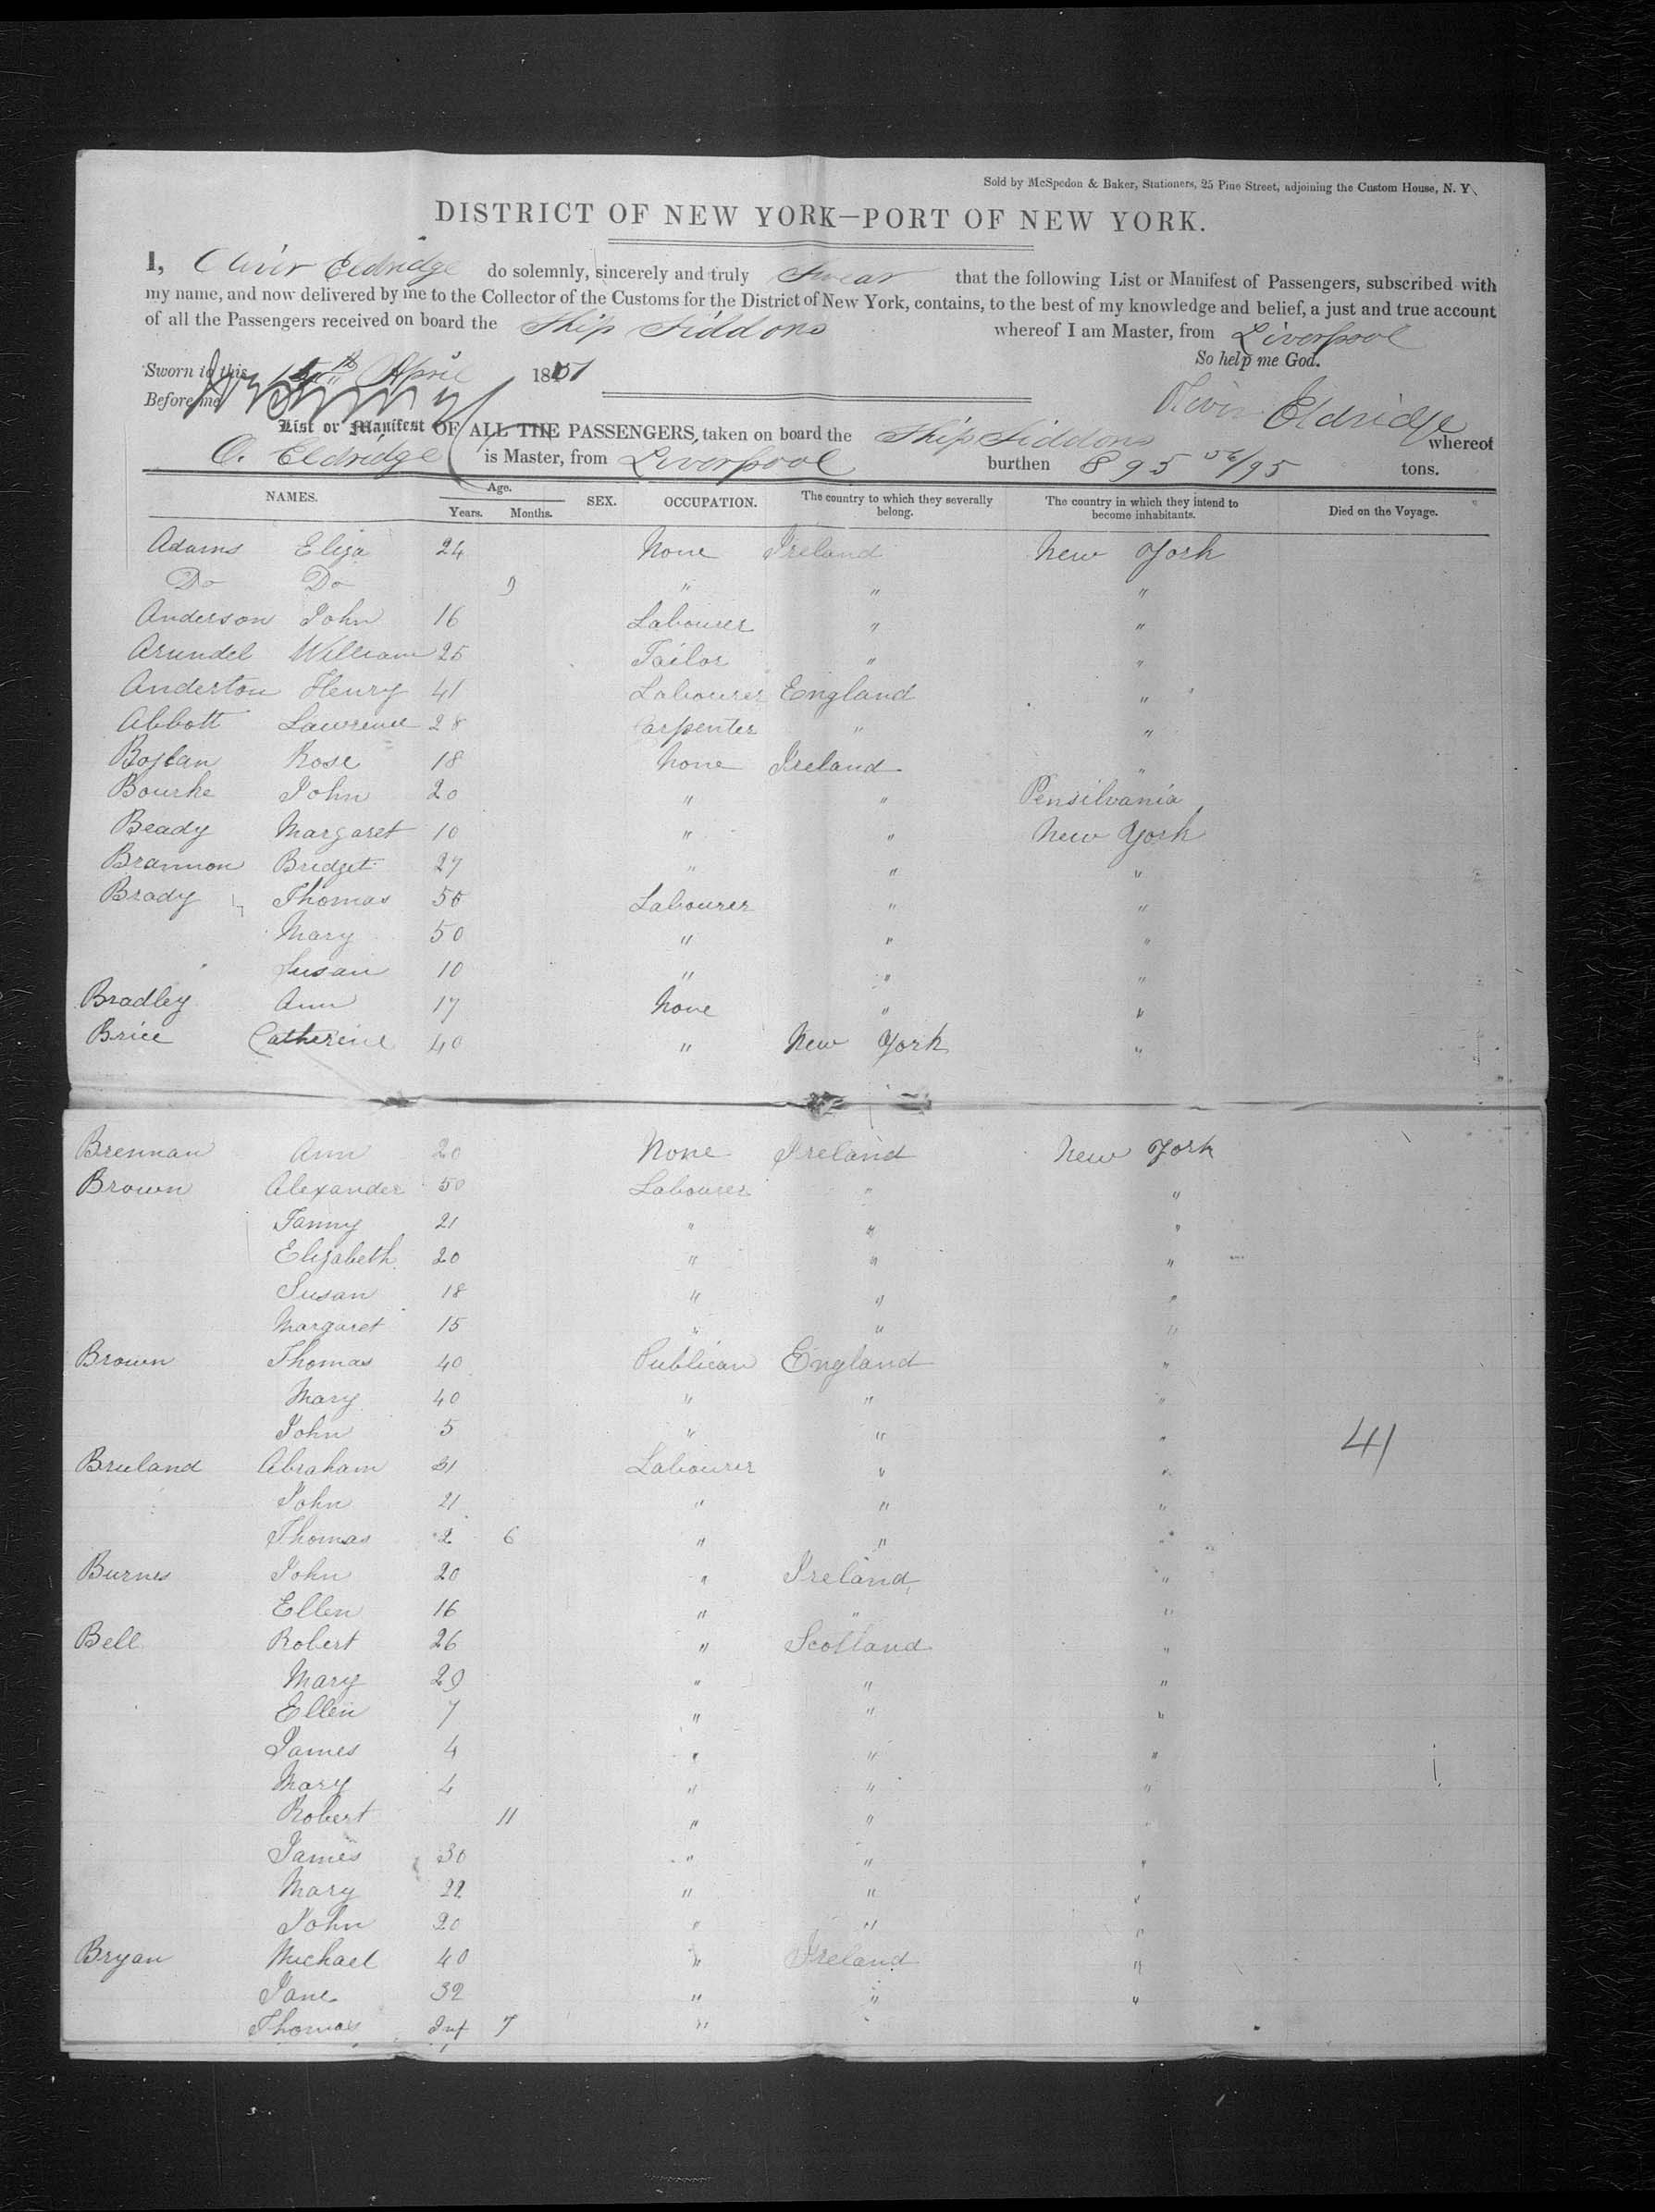 Sold by McSpedon & Baker, Stationers, 25 Pine Street, adjoining the Custom House, N. Y.
DISTRICT OF NEW YORK—PORT OF NEW YORK.
I, Oliver Eldridge do solemnly, sincerely and truly Swear that the following List or Manifest of Passengers, subscribed with
my name, and now delivered by me to the Collector of the Customs for the District of New York, contains, to the best of my knowledge and belief, a just and true account
of all the Passengers received on board the Ship Siddons whereof I am Master, from Liverpool
So help me God.
Sworn to this April 1851
Before me
Oliver Eldridge
List or Manifest OF ALL THE PASSENGERS, taken on board the Ship Siddons whereof
O. Eldridge is Master, from Liverpool burthen 895 56/95 tons.
NAMES. Age. Years. Months. SEX. OCCUPATION. The country to which they severally belong. The country in which they intend to become inhabitants. Died on the Voyage.
Adams Eliza 24 None Ireland New York
Do Do 9 " " "
Anderson John 16 Labourer " "
Arundel William 25 Tailor " "
Anderton Henry 41 Labourer England "
Abbott Lawrence 28 Carpenter " "
Boylan Rose 18 None Ireland "
Bourke John 20 " " Pensilvania
Beady Margaret 10 " " New York
Brannon Bridget 27 " " "
Brady Thomas 50 Labourer " "
Mary 50 " " "
Susan 10 " " "
Bradley Ann 17 None " "
Brice Catherine 40 " New York "
Brennan Ann 20 None Ireland New York
Brown Alexander 50 Labourer " "
Fanny 21 " " "
Elizabeth 20 " " "
Susan 18 " " "
Margaret 15 " " "
Brown Thomas 40 Publican England "
Mary 40 " " "
John 5 " " " 41
Bruland Abraham 31 Labourer " "
John 21 " " "
Thomas 2 6 " " "
Burnes John 20 " Ireland "
Ellen 16 " " "
Bell Robert 26 " Scotland "
Mary 29 " " "
Ellen 7 " " "
James 4 " " "
Mary 4 " " "
Robert 11 " " "
James 30 " " "
Mary 22 " " "
John 20 " " "
Bryan Michael 40 " Ireland "
Jane 32 " " "
Thomas Inf 7 "